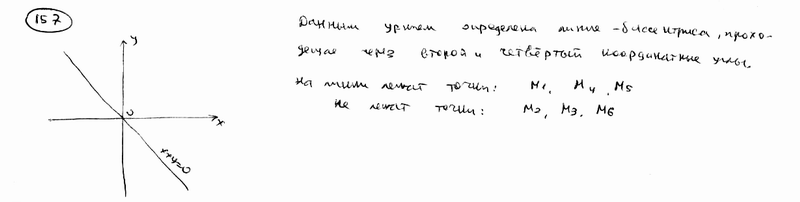 157
y
Данным ур-ием определена линия - биссектриса, прохо-
дящая через второй и четвёртый координатные углы.
На линии лежат точки: M1, M4, M5
Не лежат точки: M2, M3, M6
0
x
x+y=0